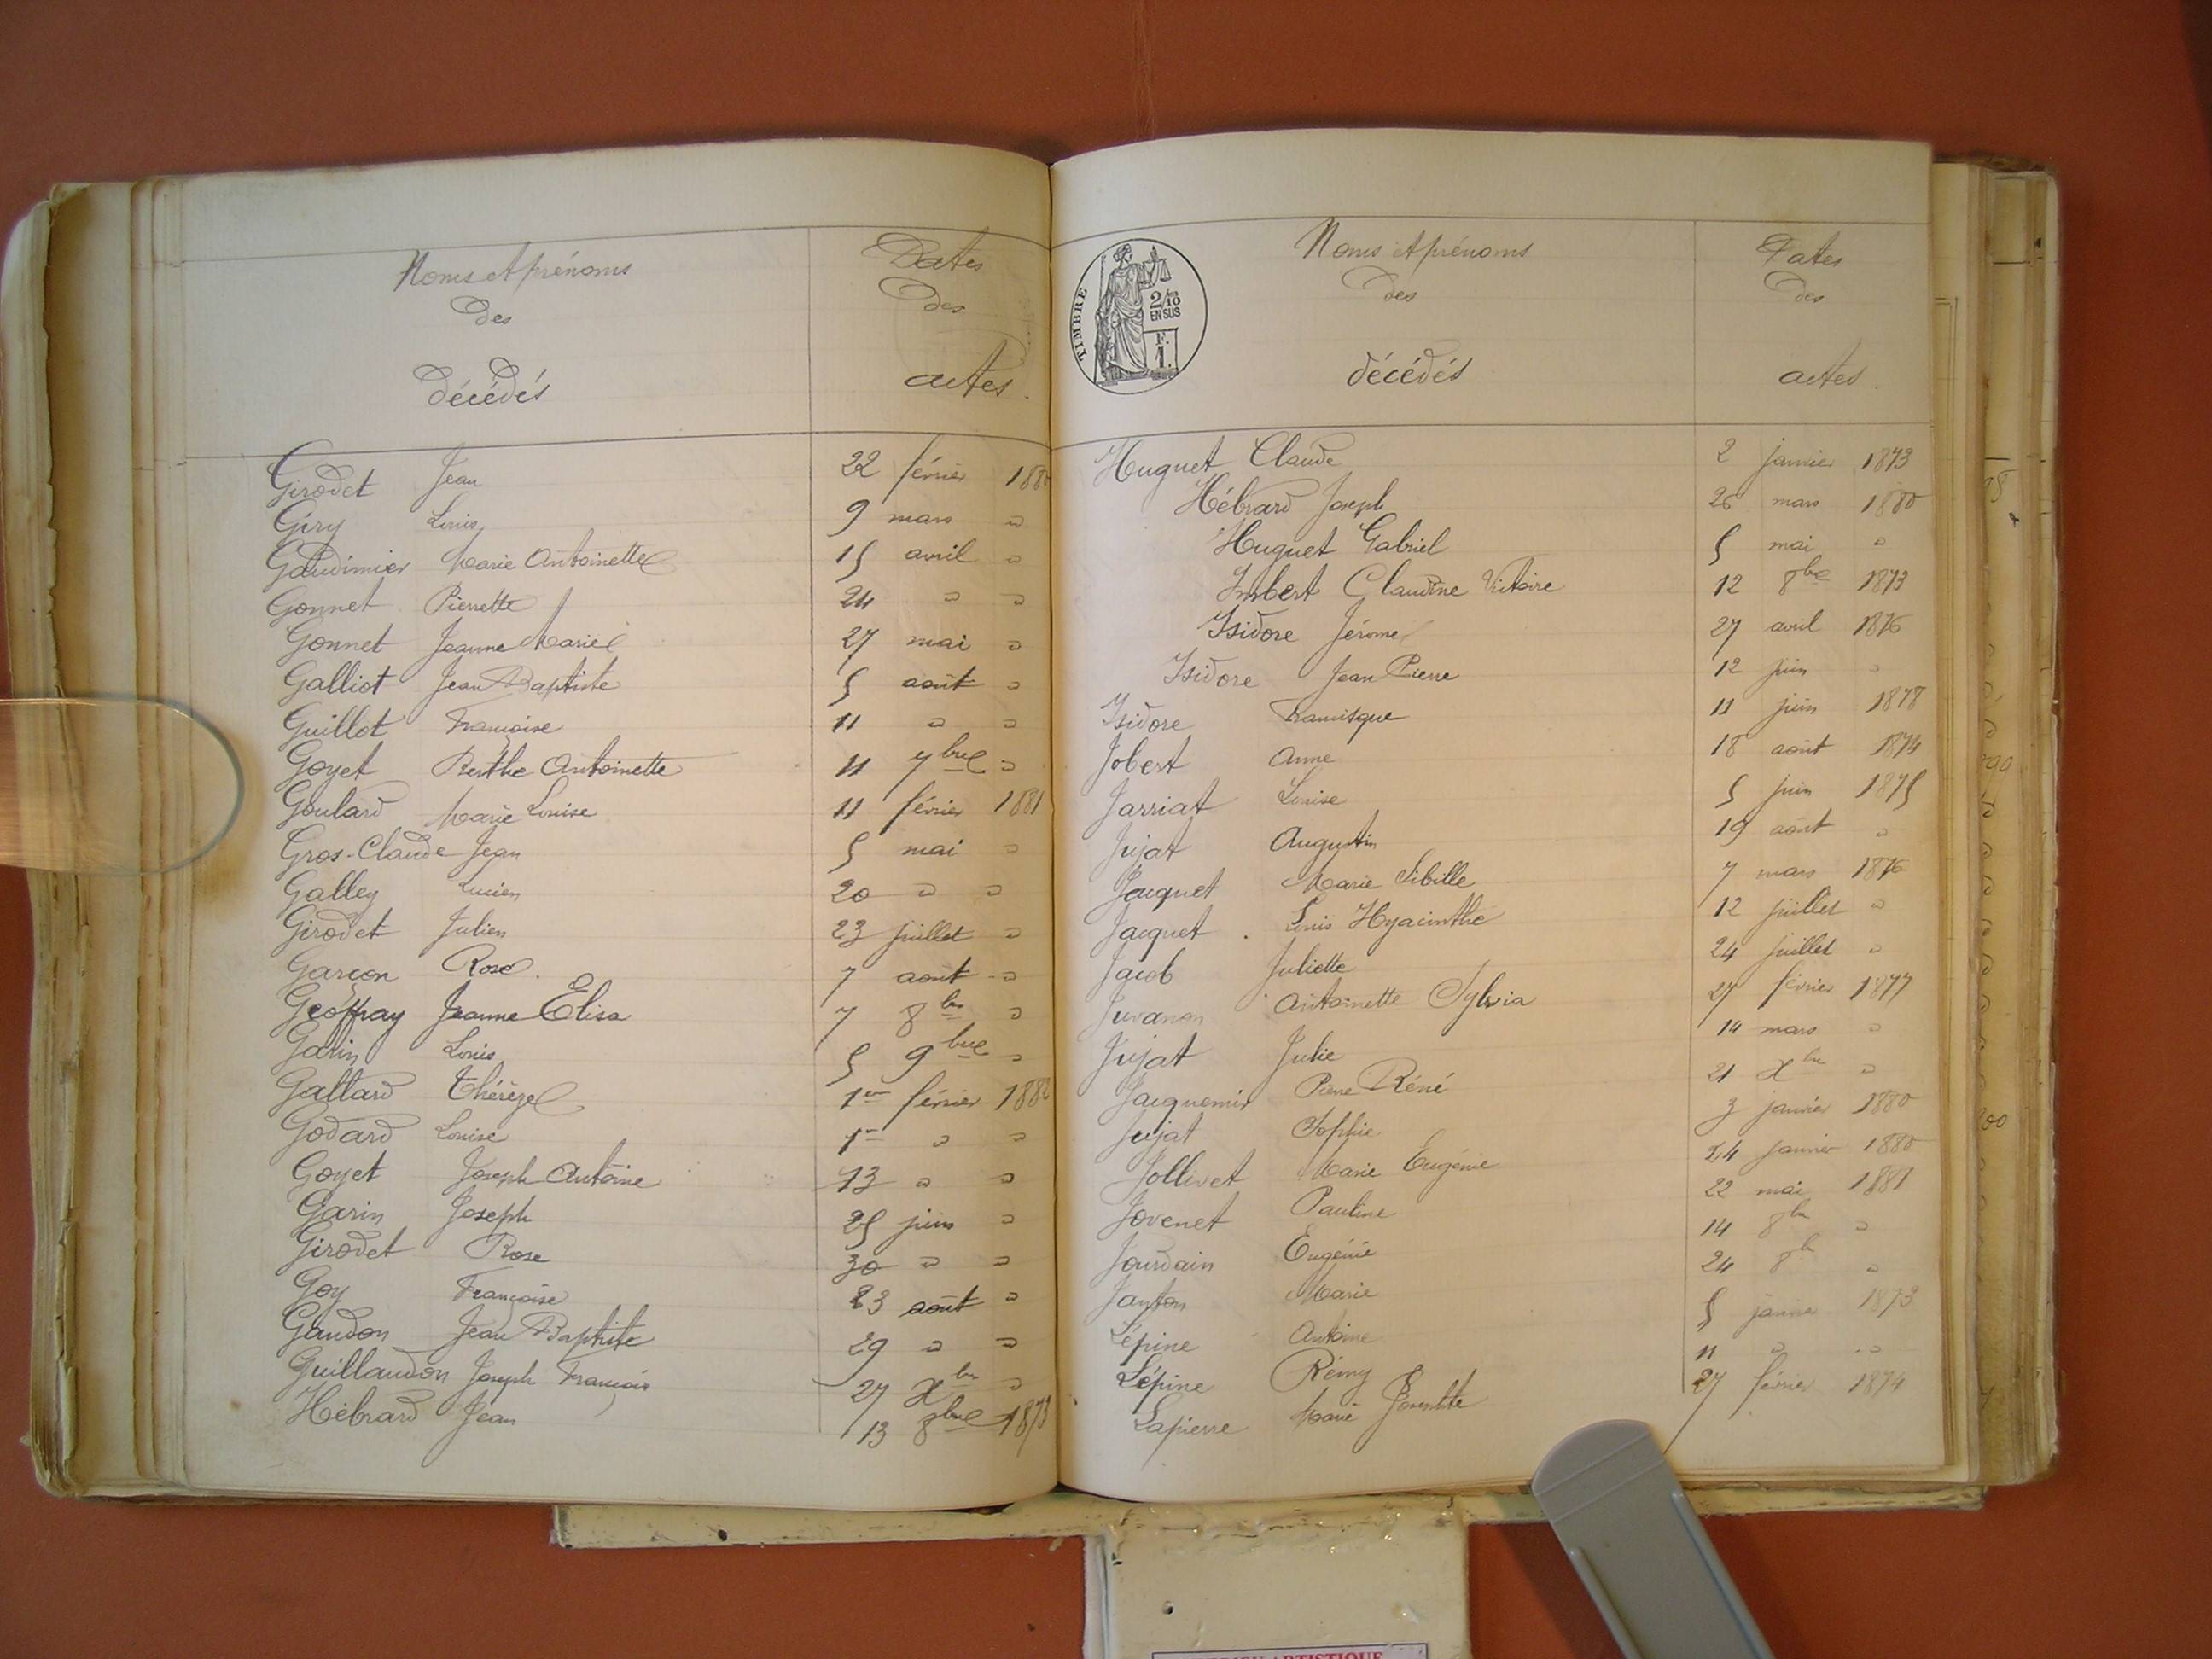 Noms et prénoms
des
décédés
Dates
des
actes.
Girodet Jean 22 février 1880
Géry Louis 9 mars "
Gaudimier Marie Antoinette 15 avril "
Gonnet Pierrette 24 " "
Gonnet Jeanne Marie 27 mai "
Galliot Jean Baptiste 5 août "
Guillot Françoise 11 " "
Goyet Berthe Antoinette 11 7bre "
Goulard Marie Louise 11 février 1881
Gros-Claude Jean 5 mai "
Galley Lucien 20 " "
Girodet Julien 23 juillet "
Garçon Rose. 7 août "
Geoffray Jeanne Elisa 7 8bre "
Garin Louis 5 9bre "
Gallard Thérèze 1er février 1882
Godard Louise 1er " "
Goyet Joseph Antoine 13 " "
Garin Joseph 25 juin "
Girodet Rose 30 " "
Goy Françoise 23 août "
Gandon Jean Baptiste 29 " "
Guillaudon Joseph François 27 Xbre "
Hébrard Jean 13 8bre 1873
TIMBRE
2/10
EN SUS
F.
1.
Noms et prénoms
des
décédés
Dates
des
actes.
Huguet Claude 2 janvier 1873
Hébrard Joseph 26 mars 1880
Huguet Gabriel 5 mai "
Imbert Claudine Victoire 12 8bre 1873
Isidore Jérome 27 avril 1876
Isidore Jean Pierre 12 juin "
Isidore Francisque 11 juin 1878
Jobert Anne 18 août 1874
Jarriat Louise 5 juin 1875
Jujat Augustin 19 août "
Jacquet Marie Sibille 7 mars 1876
Jacquet Louis Hyacinthe 12 juillet "
Jacob Juliette 24 juillet "
Juvanon Antoinette Sylvia 27 février 1877
Jujat Julie 14 mars "
Jacquemir Pierre Réné 21 Xbre "
Jujat Sophie 3 janvier 1880
Jollivet Marie Eugénie 24 janvier 1880
Jovenet Pauline 22 mai 1881
Jourdain Eugénie 14 8bre "
Janton Marie 24 8bre "
Lépine Antoine 5 janvier 1873
Lépine Rémy 11 " "
Lapierre Marie 27 février 1874